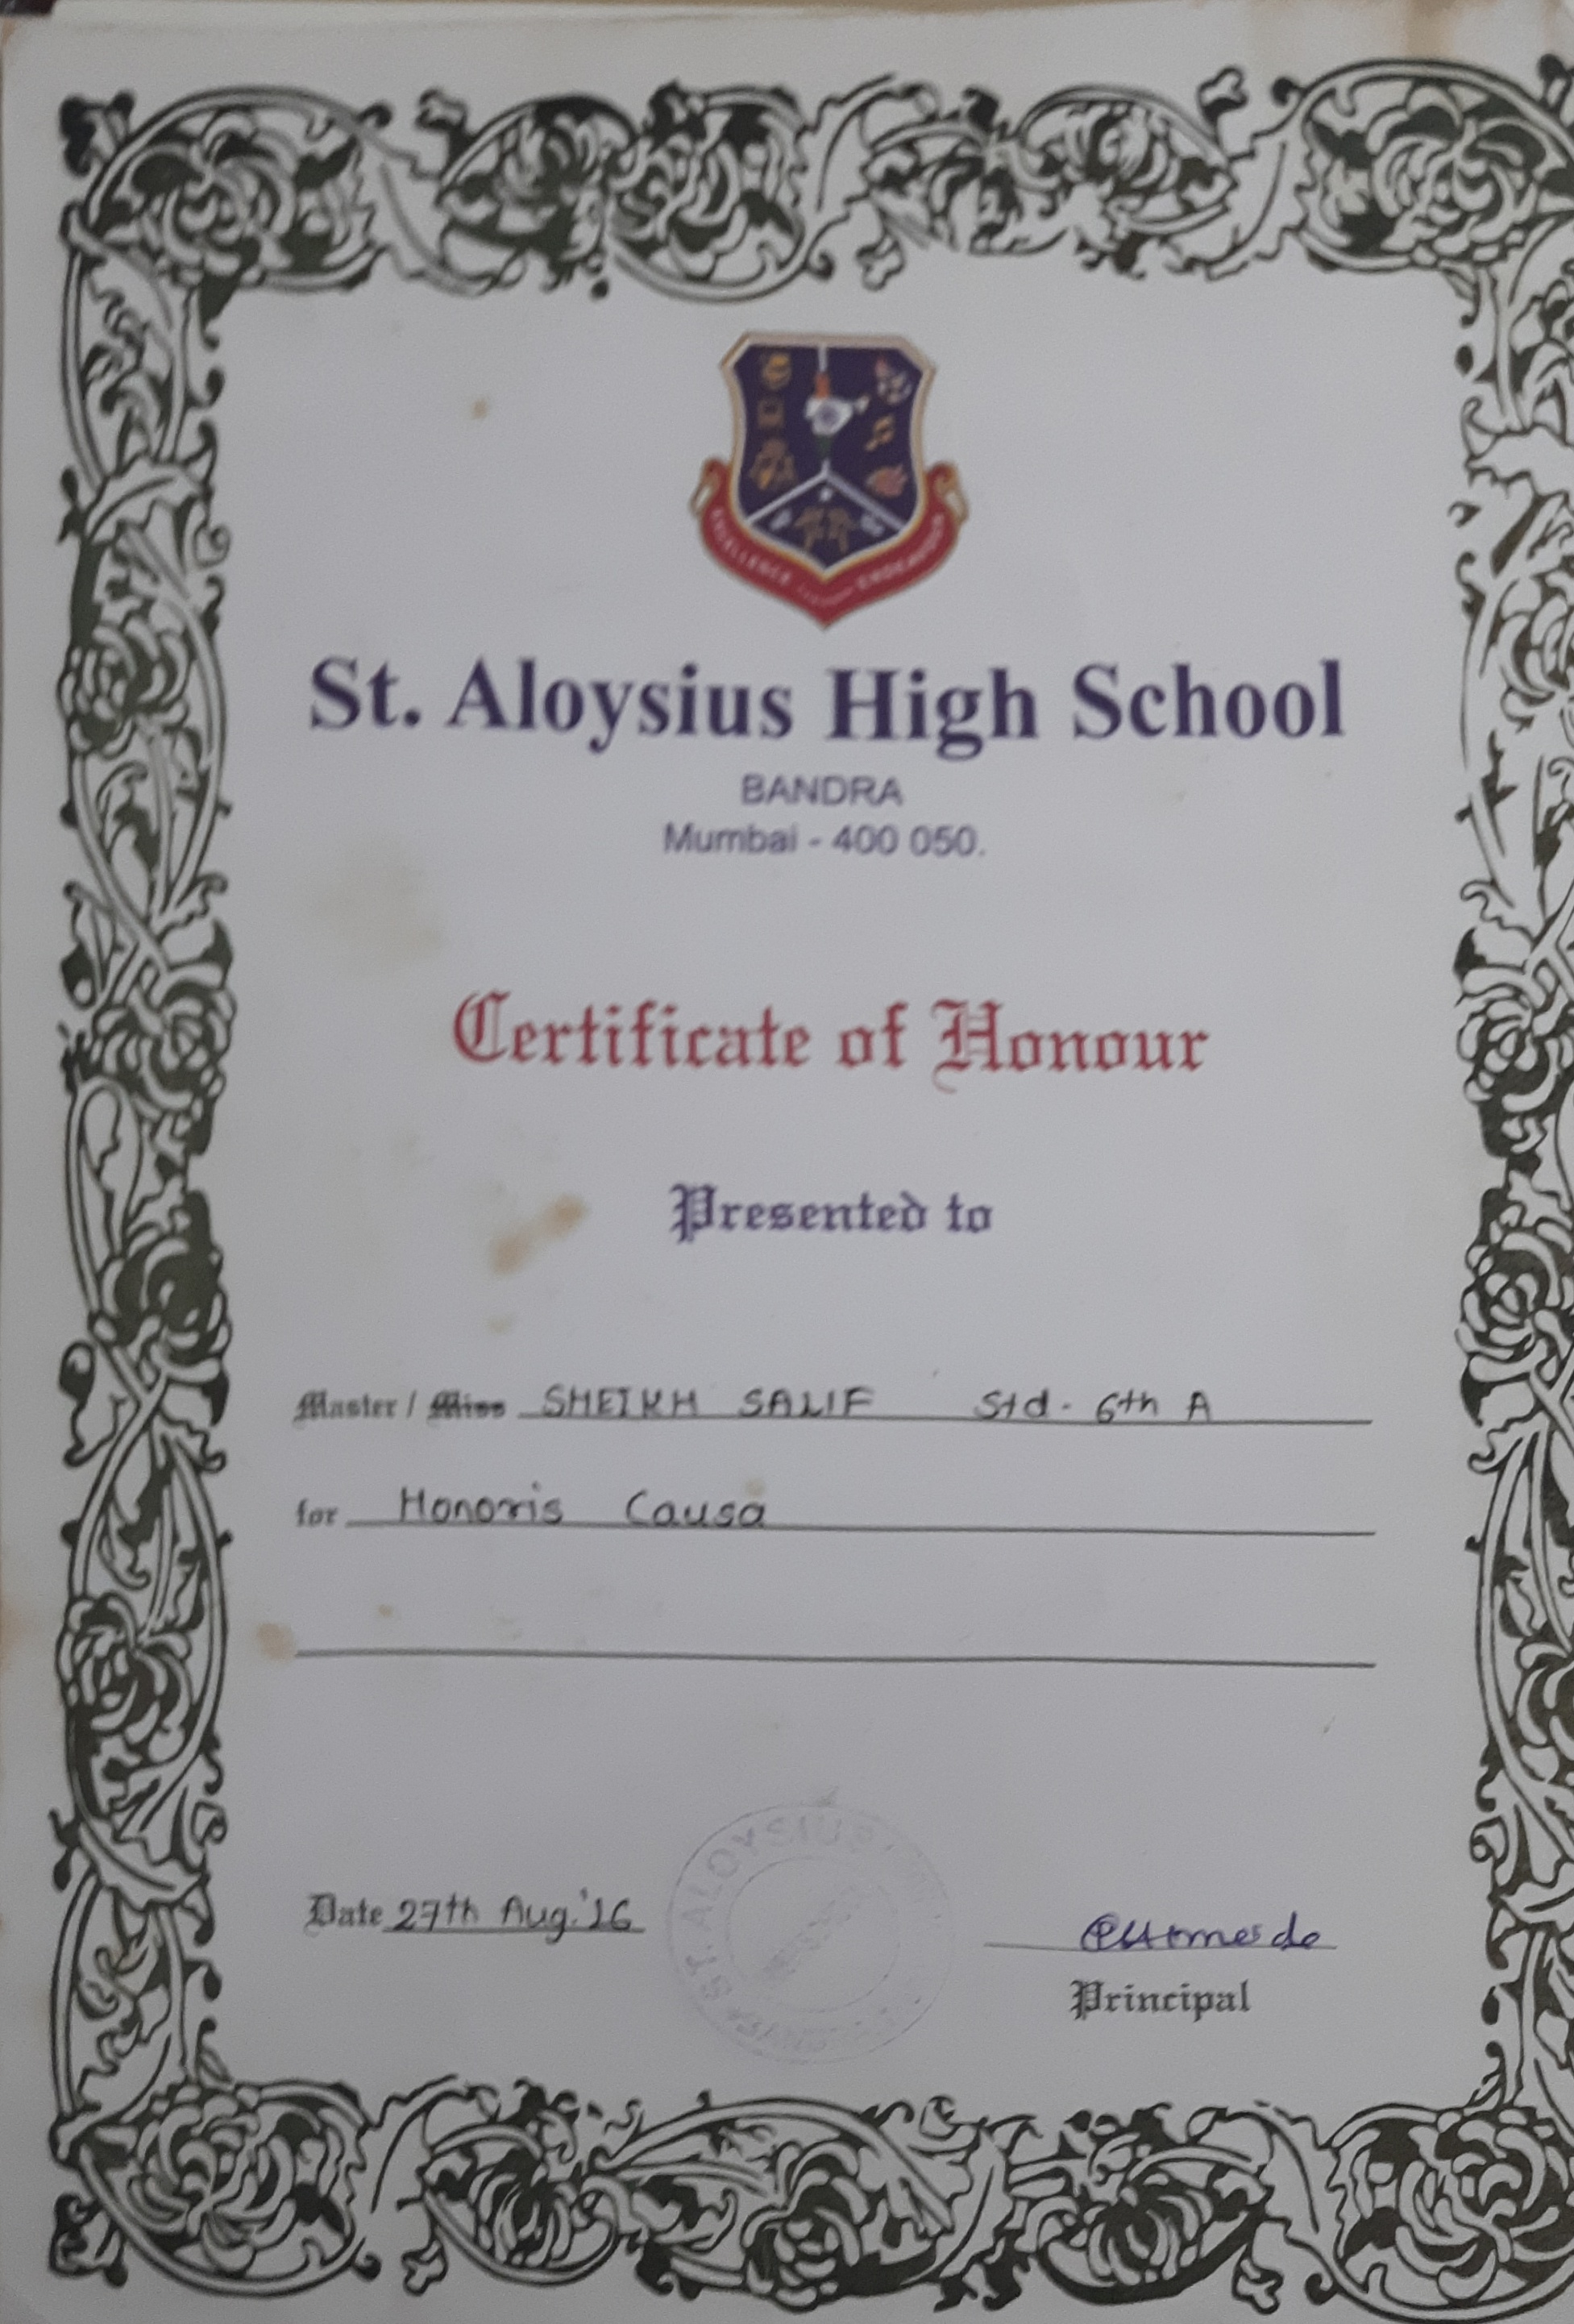 EXCELLENCE ENDEAVOUR
St. Aloysius High School
BANDRA
Mumbai - 400 050.
Certificate of Honour
Presented to
Master / Miss SHEIKH SALIF Std - 6th A
for Honoris Causa
ST. ALOYSIUS
Date 27th Aug.'16
Principal